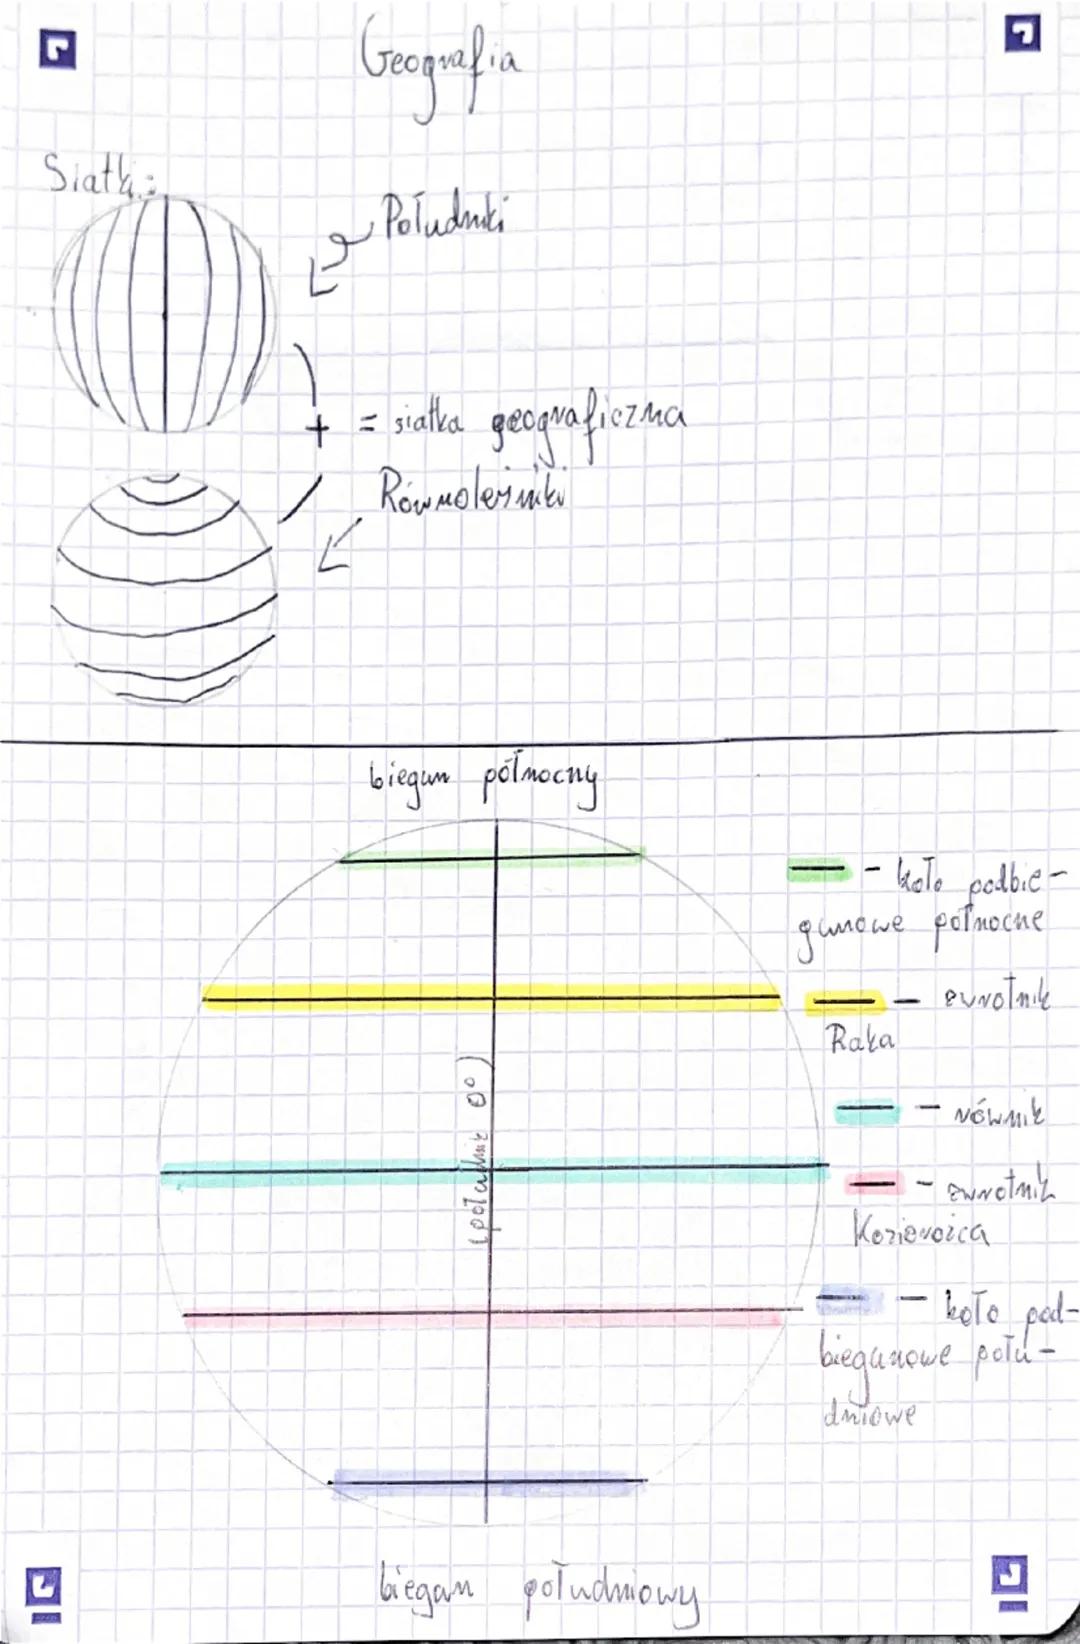 Geografia
Siatki:
Południki
+ = siatka geograficzna
Równoleżniki
biegun północny
- koło podbie-
gunowe północne
- zwrotnik
Raka
(południk 0°)
- równik
- zwrotnik
Koziorożca
- koło pod-
biegunowe połu-
dniowe
biegun południowy